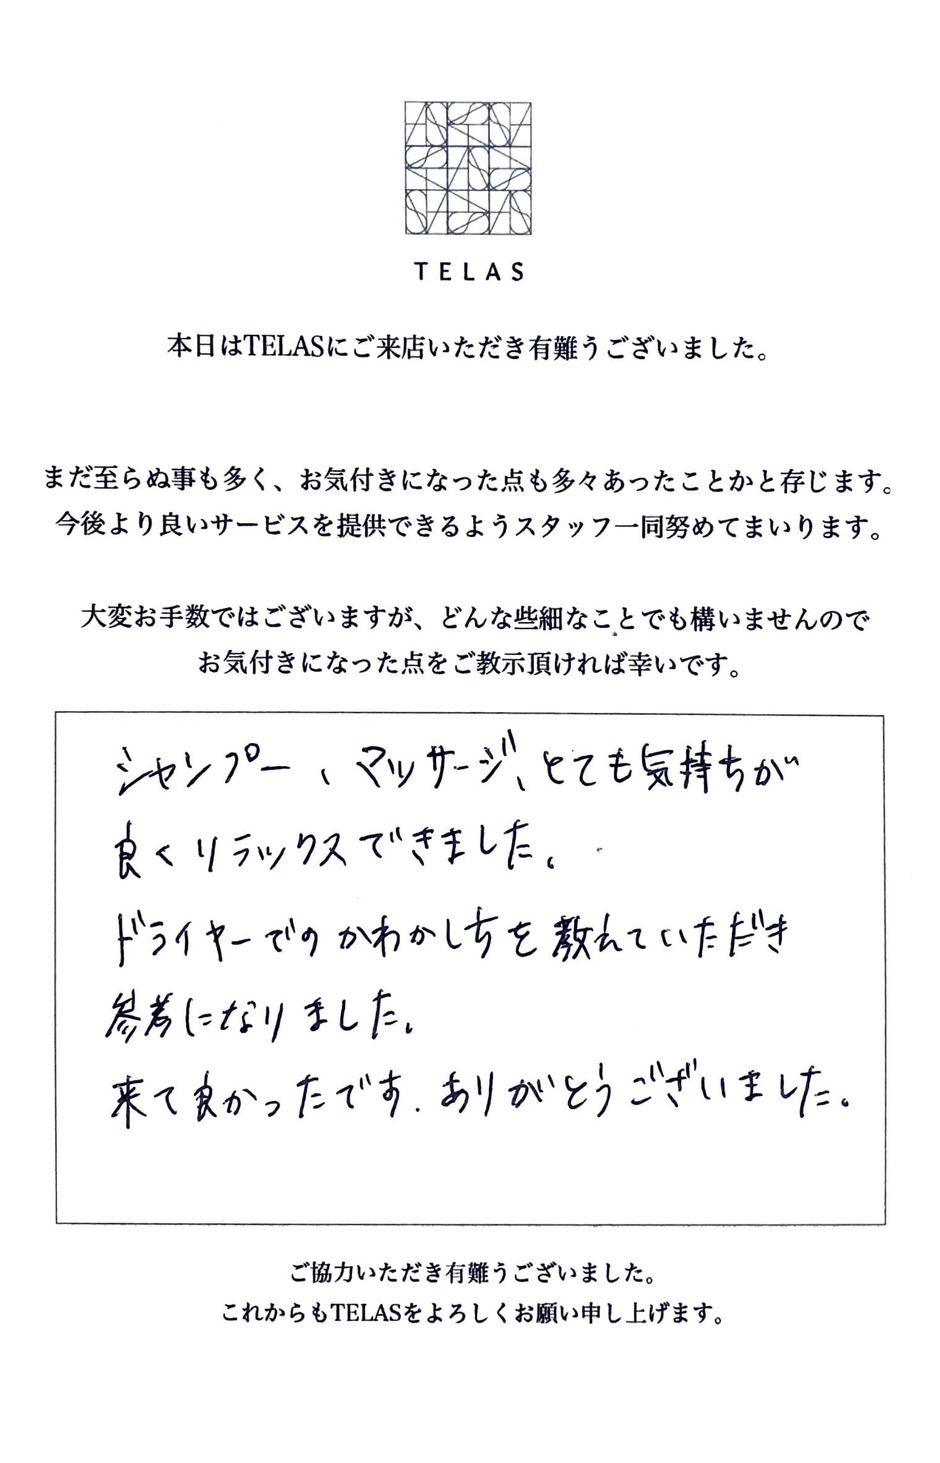 TELAS
本日はTELASにご来店いただき有難うございました。
まだ至らぬ事も多く、お気付きになった点も多々あったことかと存じます。
今後より良いサービスを提供できるようスタッフ一同努めてまいります。
大変お手数ではございますが、どんな些細なことでも構いませんので
お気付きになった点をご教示頂ければ幸いです。
シャンプー、マッサージ、とても気持ちが
良くリラックスできました。
ドライヤーでのかわかし方を教えていただき
参考になりました。
来て良かったです.ありがとうございました。
ご協力いただき有難うございました。
これからもTELASをよろしくお願い申し上げます。